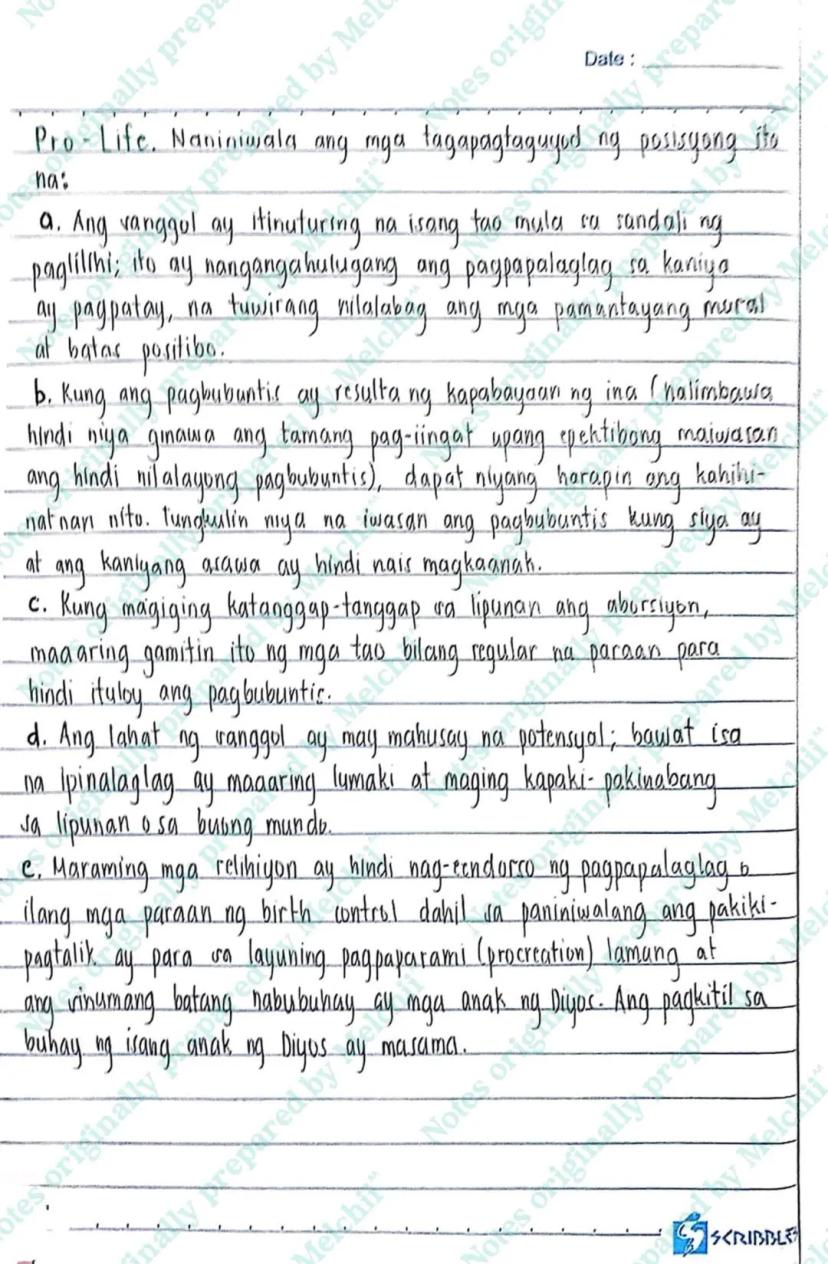 Date :
Pro-Life. Naniniwala ang mga tagapagtaguyod ng posisyong ito
na:
a. Ang sanggol ay itinuturing na isang tao mula sa sandali ng
paglilihi; ito ay nangangahulugang ang pagpapalaglag sa kaniya
ay pagpatay, na tuwirang nilalabag ang mga pamantayang moral
at batas positibo.
b. Kung ang pagbubuntis ay resulta ng kapabayaan ng ina (halimbawa
hindi niya ginawa ang tamang pag-iingat upang epektibong maiwasan
ang hindi nilalayong pagbubuntis), dapat niyang harapin ang kahihi-
natnan nito. Tungkulin niya na iwasan ang pagbubuntis kung siya ay
at ang kaniyang asawa ay hindi nais magkaanak.
c. Kung magiging katanggap-tanggap sa lipunan ang aborsiyon,
maaaring gamitin ito ng mga tao bilang regular na paraan para
hindi ituloy ang pagbubuntis.
d. Ang lahat ng sanggol ay may mahusay na potensyal; bawat isa
na ipinalaglag ay maaaring lumaki at maging kapaki-pakinabang
sa lipunan o sa buong mundo.
e. Maraming mga relihiyon ay hindi nag-eendorso ng pagpapalaglag o
ilang mga paraan ng birth control dahil sa paniniwalang ang pakiki-
pagtalik ay para sa layuning pagpaparami (procreation) lamang at
ang sinumang batang nabubuhay ay mga anak ng Diyos. Ang pagkitil sa
buhay ng isang anak ng Diyos ay masama.
SCRIBBLES
Notes originally prepared by Melchii